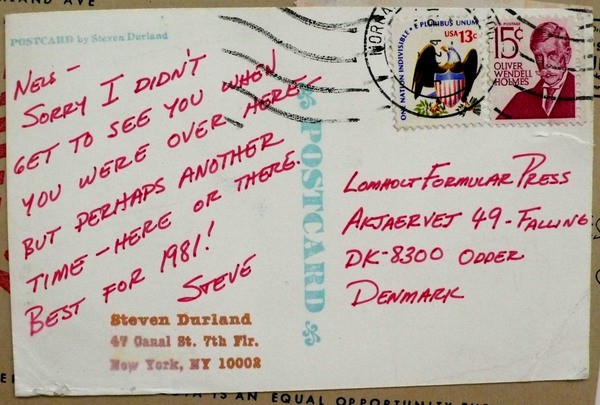 AND AVE
POSTCARD by Steven Durland
NELS –
SORRY I DIDN'T
GET TO SEE YOU WHEN
YOU WERE OVER HERE
BUT PERHAPS ANOTHER
TIME – HERE OR THERE.
BEST FOR 1981!
STEVE
Steven Durland
47 Canal St. 7th Flr.
New York, NY 10002
POSTCARD
ONE NATION INDIVISIBLE • E PLURIBUS UNUM
USA 13c
15¢
OLIVER
WENDELL
HOLMES
LOMHOLT FORMULAR PRESS
AKJAERVEJ 49 - FALLING
DK-8300 ODDER
DENMARK
IS AN EQUAL OPPORTUNITY